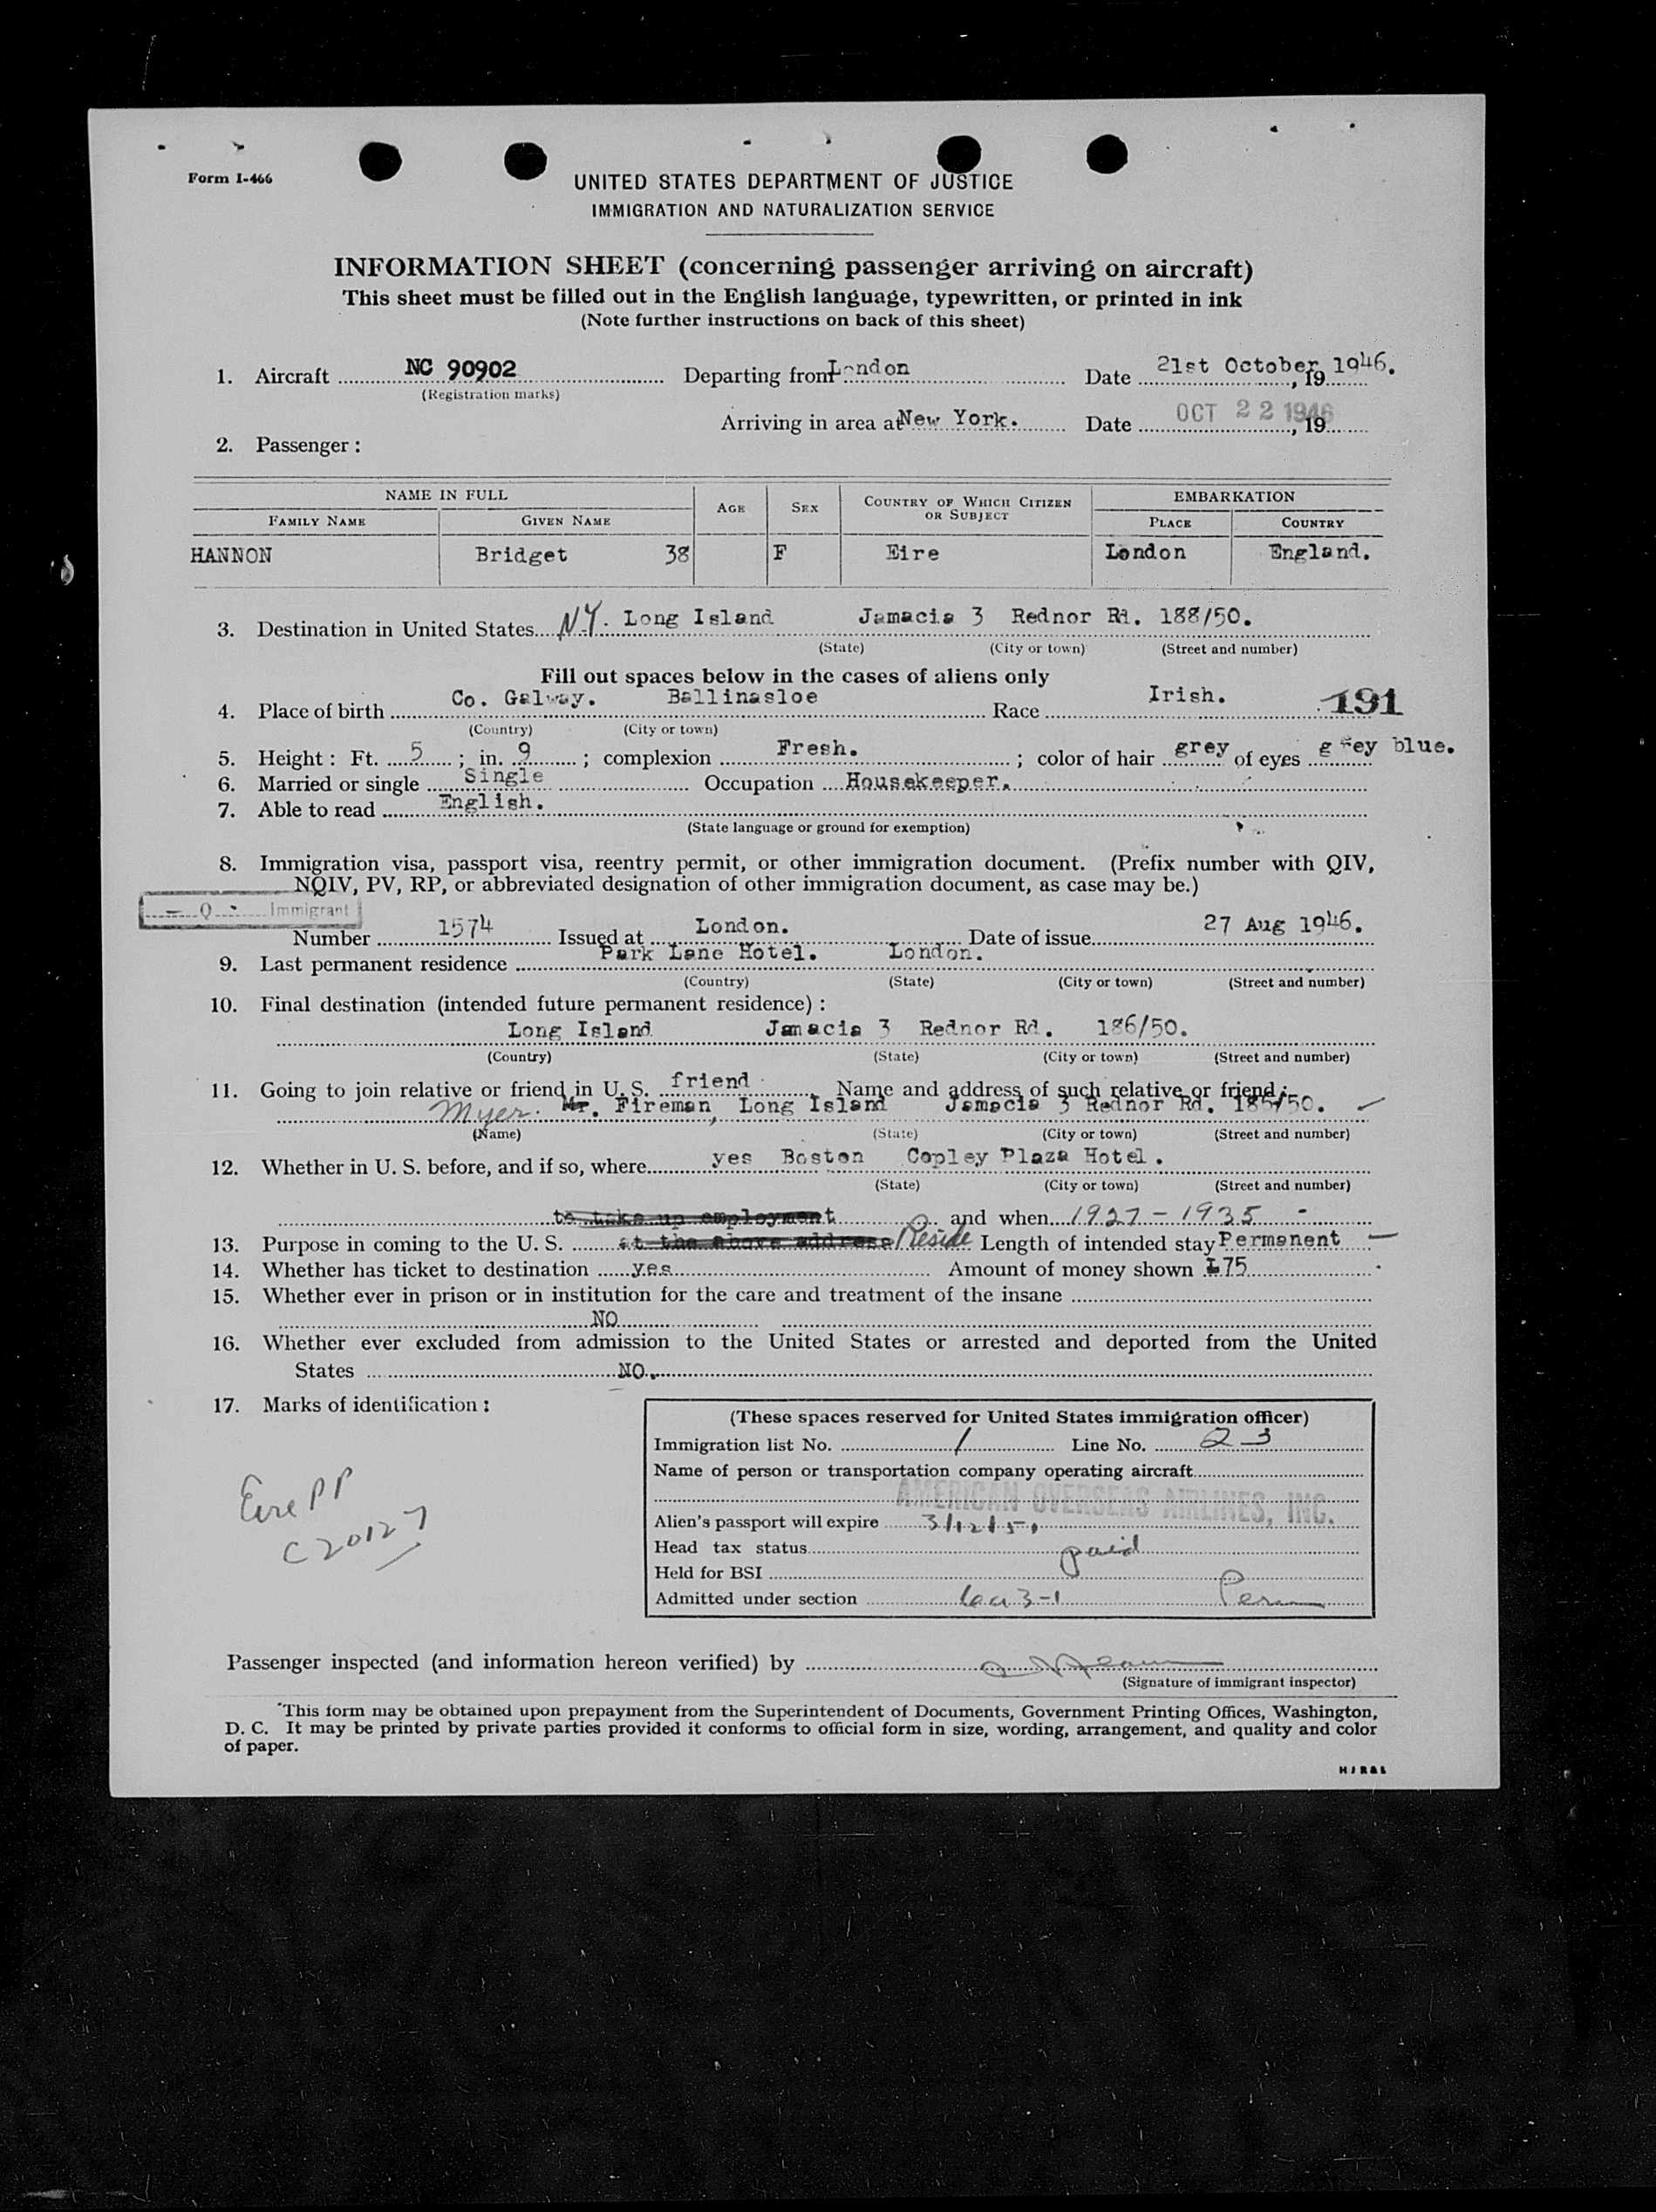 Form I-466
UNITED STATES DEPARTMENT OF JUSTICE
IMMIGRATION AND NATURALIZATION SERVICE
INFORMATION SHEET (concerning passenger arriving on aircraft)
This sheet must be filled out in the English language, typewritten, or printed in ink
(Note further instructions on back of this sheet)
1. Aircraft NC 90902 Departing from London Date 21st October, 19 1946.
(Registration marks)
Arriving in area at New York. Date OCT 22 1946, 19
2. Passenger:
NAME IN FULL AGE SEX COUNTRY OF WHICH CITIZEN OR SUBJECT EMBARKATION
FAMILY NAME GIVEN NAME PLACE COUNTRY
HANNON Bridget 38 F Eire London England.
3. Destination in United States N.Y. Long Island Jamacia 3 Rednor Rd. 188/50.
(State) (City or town) (Street and number)
Fill out spaces below in the cases of aliens only
4. Place of birth Co. Galway. Ballinasloe Race Irish. 191
(Country) (City or town)
5. Height: Ft. 5; in. 9; complexion Fresh.; color of hair grey of eyes grey blue.
6. Married or single Single Occupation Housekeeper.
7. Able to read English.
(State language or ground for exemption)
8. Immigration visa, passport visa, reentry permit, or other immigration document. (Prefix number with QIV,
NQIV, PV, RP, or abbreviated designation of other immigration document, as case may be.)
Q Immigrant
Number 1574 Issued at London. Date of issue 27 Aug 1946.
9. Last permanent residence Park Lane Hotel. London.
(Country) (State) (City or town) (Street and number)
10. Final destination (intended future permanent residence):
Long Island Jamacia 3 Rednor Rd. 186/50.
(Country) (State) (City or town) (Street and number)
11. Going to join relative or friend in U. S. friend Name and address of such relative or friend:
Myer. Mr. Fireman, Long Island Jamacia 3 Rednor Rd.
(Name) (State) (City or town) (Street and number)
12. Whether in U. S. before, and if so, where yes Boston Copley Plaza Hotel.
(State) (City or town) (Street and number)
to take up employment and when 1927 - 1935 -
13. Purpose in coming to the U. S. at the above address Reside Length of intended stay Permanent
14. Whether has ticket to destination yes Amount of money shown £75
15. Whether ever in prison or in institution for the care and treatment of the insane
NO
16. Whether ever excluded from admission to the United States or arrested and deported from the United
States NO.
17. Marks of identification:
Eire PP
C 20127
(These spaces reserved for United States immigration officer)
Immigration list No. 1 Line No. 23
Name of person or transportation company operating aircraft
AMERICAN OVERSEAS AIRLINES, INC.
Alien's passport will expire 3/12/51
Head tax status paid
Held for BSI
Admitted under section 6a3-1 Perm
Passenger inspected (and information hereon verified) by
(Signature of immigrant inspector)
This form may be obtained upon prepayment from the Superintendent of Documents, Government Printing Offices, Washington,
D. C. It may be printed by private parties provided it conforms to official form in size, wording, arrangement, and quality and color
of paper.